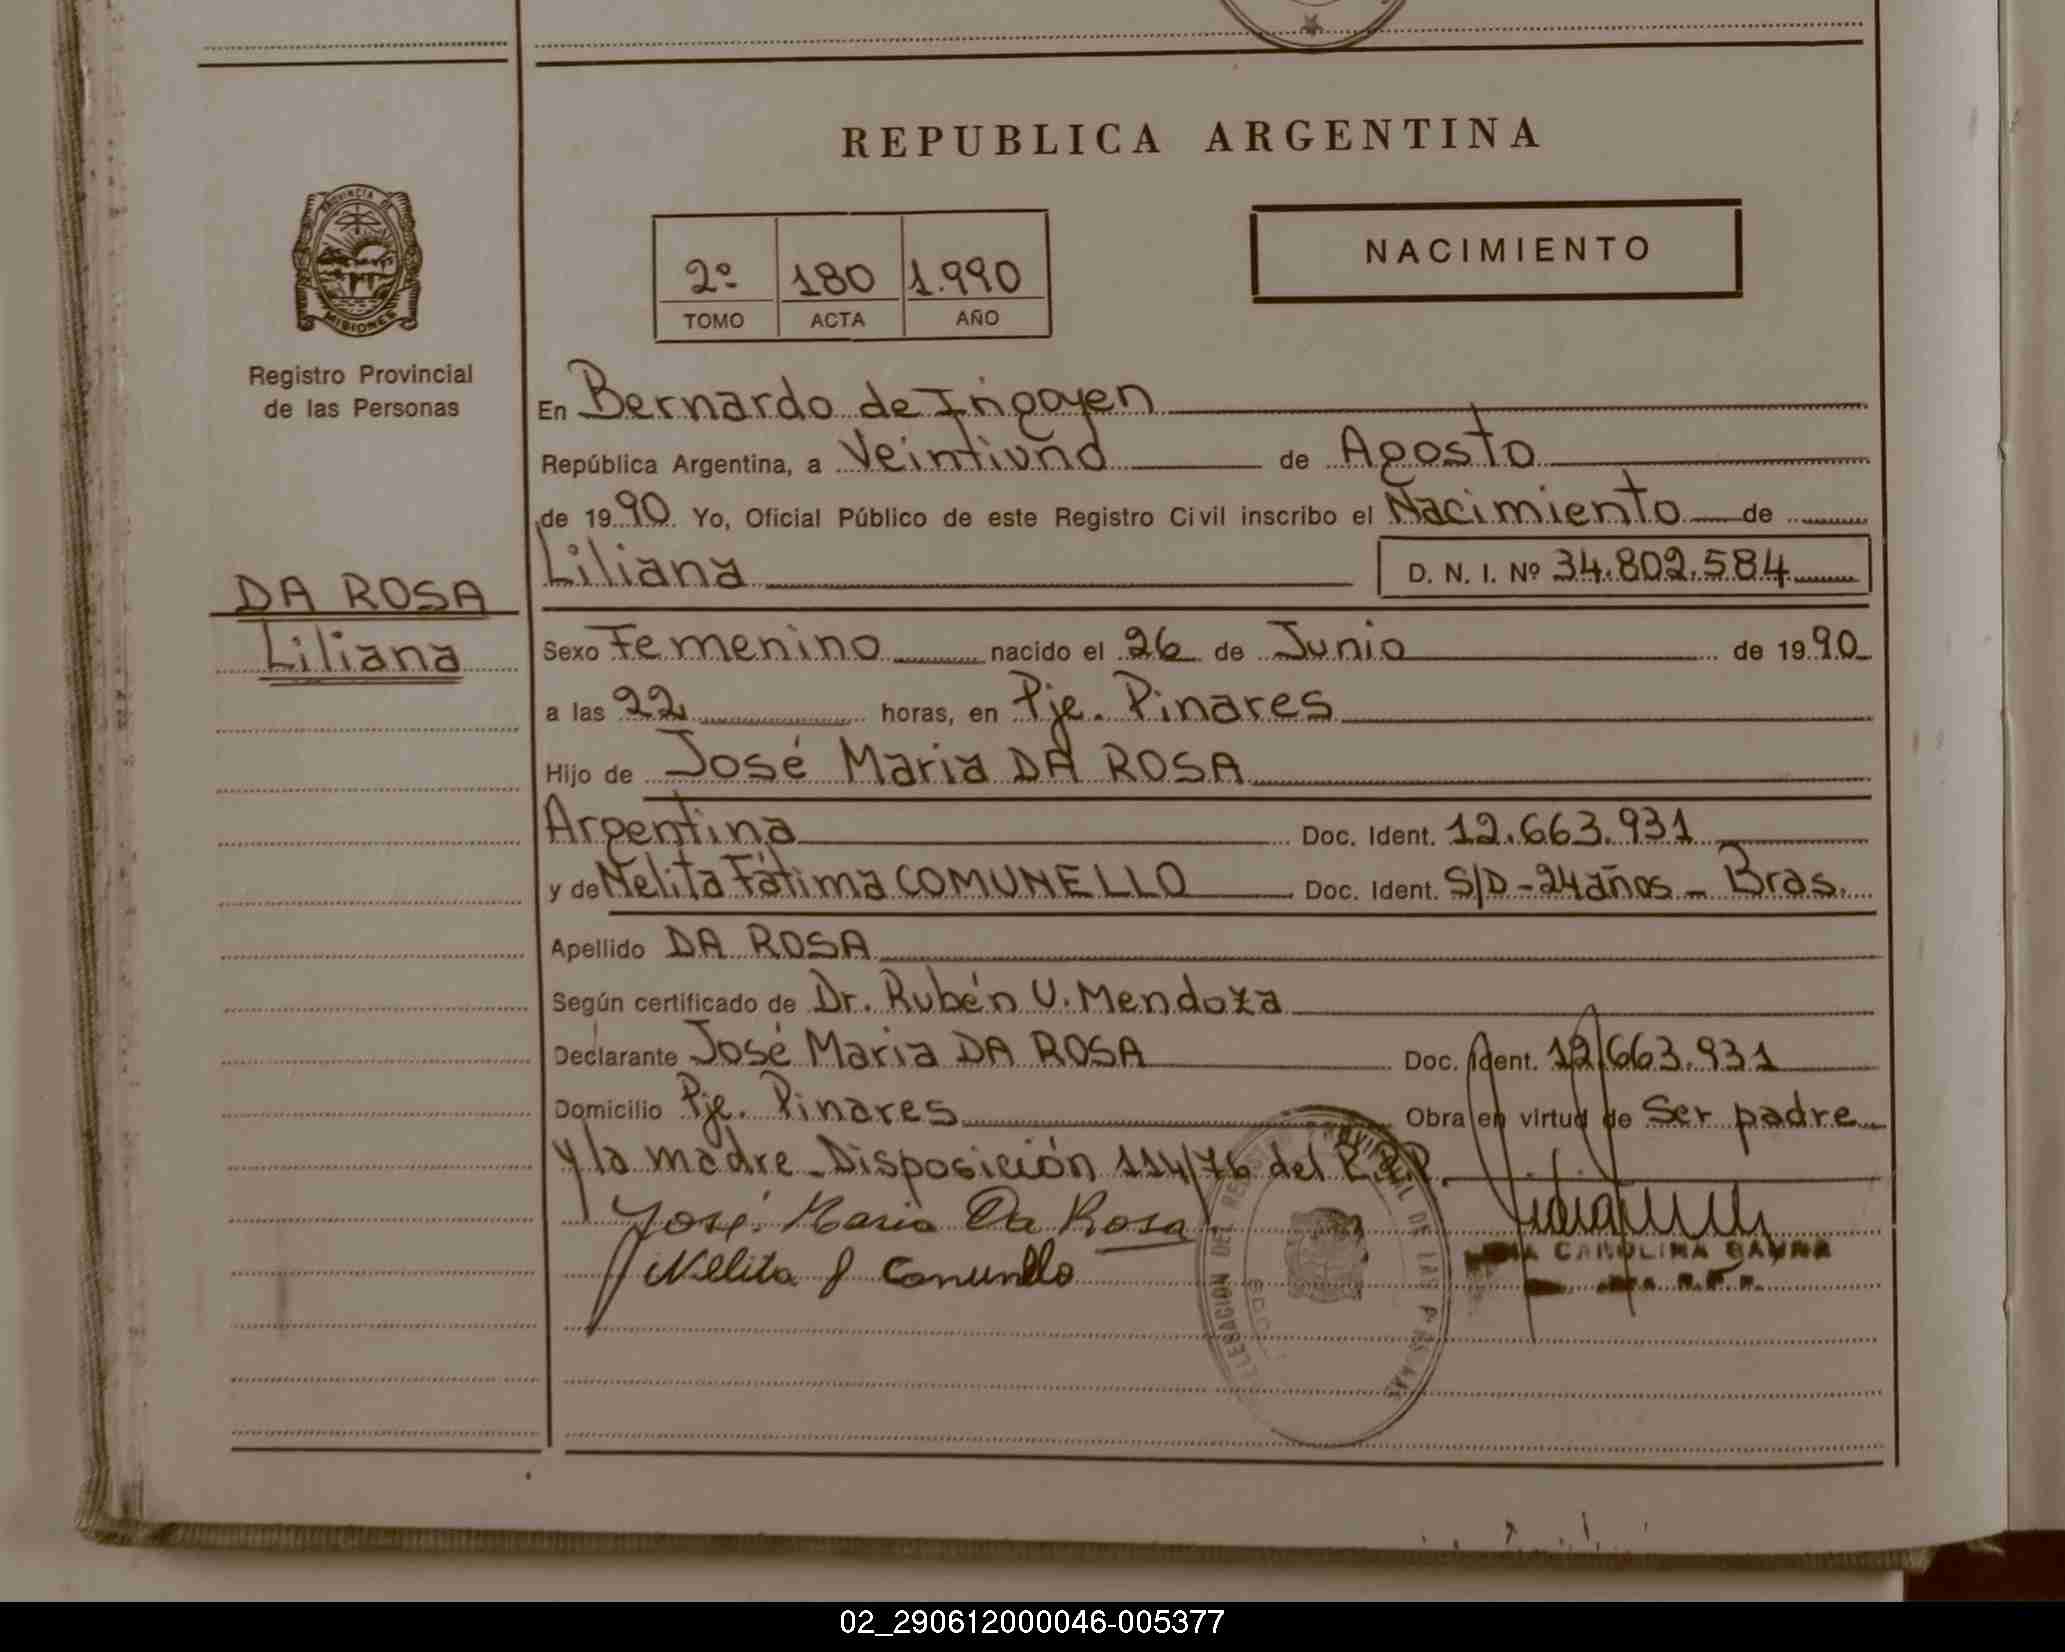 REPUBLICA ARGENTINA
PROVINCIA DE
MISIONES
Registro Provincial
de las Personas
2º 180 1.990
TOMO ACTA AÑO
NACIMIENTO
En Bernardo de Irigoyen
República Argentina, a Veintiuno de Agosto
de 1990. Yo, Oficial Público de este Registro Civil inscribo el Nacimiento de
Liliana D. N. I. Nº 34.802.584
DA ROSA
Liliana
Sexo Femenino nacido el 26 de Junio de 1990
a las 22 horas, en Pje. Pinares
Hijo de José Maria DA ROSA
Argentina Doc. Ident. 12.663.931
y de Nelita Fátima COMUNELLO Doc. Ident. S/D-24 años - Bras.
Apellido DA ROSA
Según certificado de Dr. Rubén V. Mendoza
Declarante José Maria DA ROSA Doc. Ident. 12.663.931
Domicilio Pje. Pinares Obra en virtud de Ser padre
y la madre - Disposición 114/76 del R.P.P.
José Maria Da Rosa
Nelita f Comunello
CAROLINA
DELEGACION DEL REGISTRO PROVINCIAL DE LAS PERSONAS
02_290612000046-005377